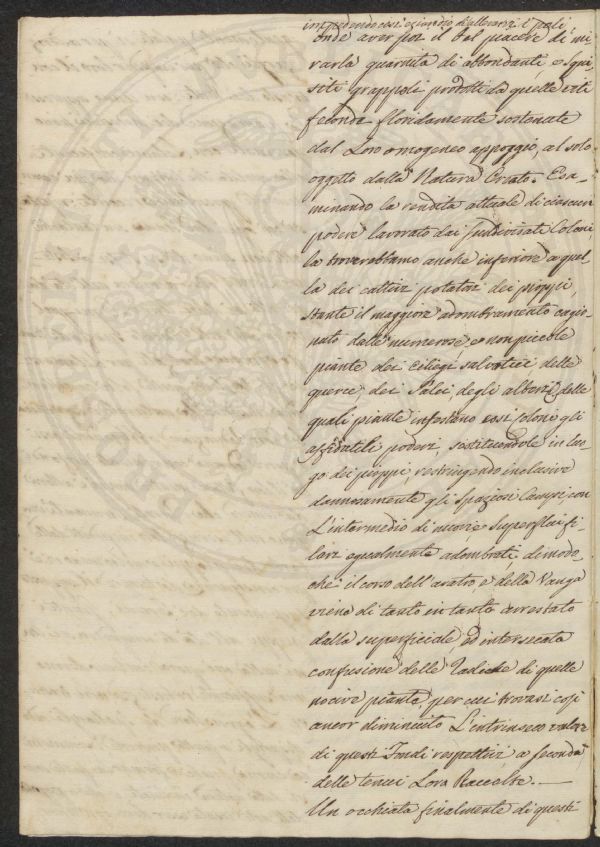 intendendo così esimersi di allevarsi i pali
onde aver poi il bel piacere di mi-
rarla guarnita di abbondanti, e squi-
siti grappoli prodotti da quelle viti
feconde floridamente sostenute
dal Loro omogeneo appoggio, a el solo
oggetto dalla Natura Creato. Esa-
minando la rendita attuale di ciascun
podere lavorato dai suddivisati Coloni,
la troverebbamo anche inferiore a quel-
la dei cattivi potatori dei pioppi,
stante il maggiore adombramento cagio-
nato dalle numerose, e non piccole
piante dei ciliegi salvatici delle
querce, dei Salci degli alberi, delle
quali piante infestano essi Coloni gli
affidatili poderi, sostituendole in luo-
go dei pioppi, restringendo inclusive
dannosamente gli spaziosi Campi con
L'intermedio di nuovi e superflui fi-
lari egualmente adombrati, di modo-
chè il corso dell'aratro, e della Vanga
viene di tanto in tanto arrestato
dalla superficiale, ed intersecata
confusione delle Radiche di quelle
nocive piante per cui trovasi così
ancor diminuito L'intrinseco valore
di questi Fondi respettivi a seconda
delle tenui Loro Raccolte. —
Un occhiata finalmente di questi